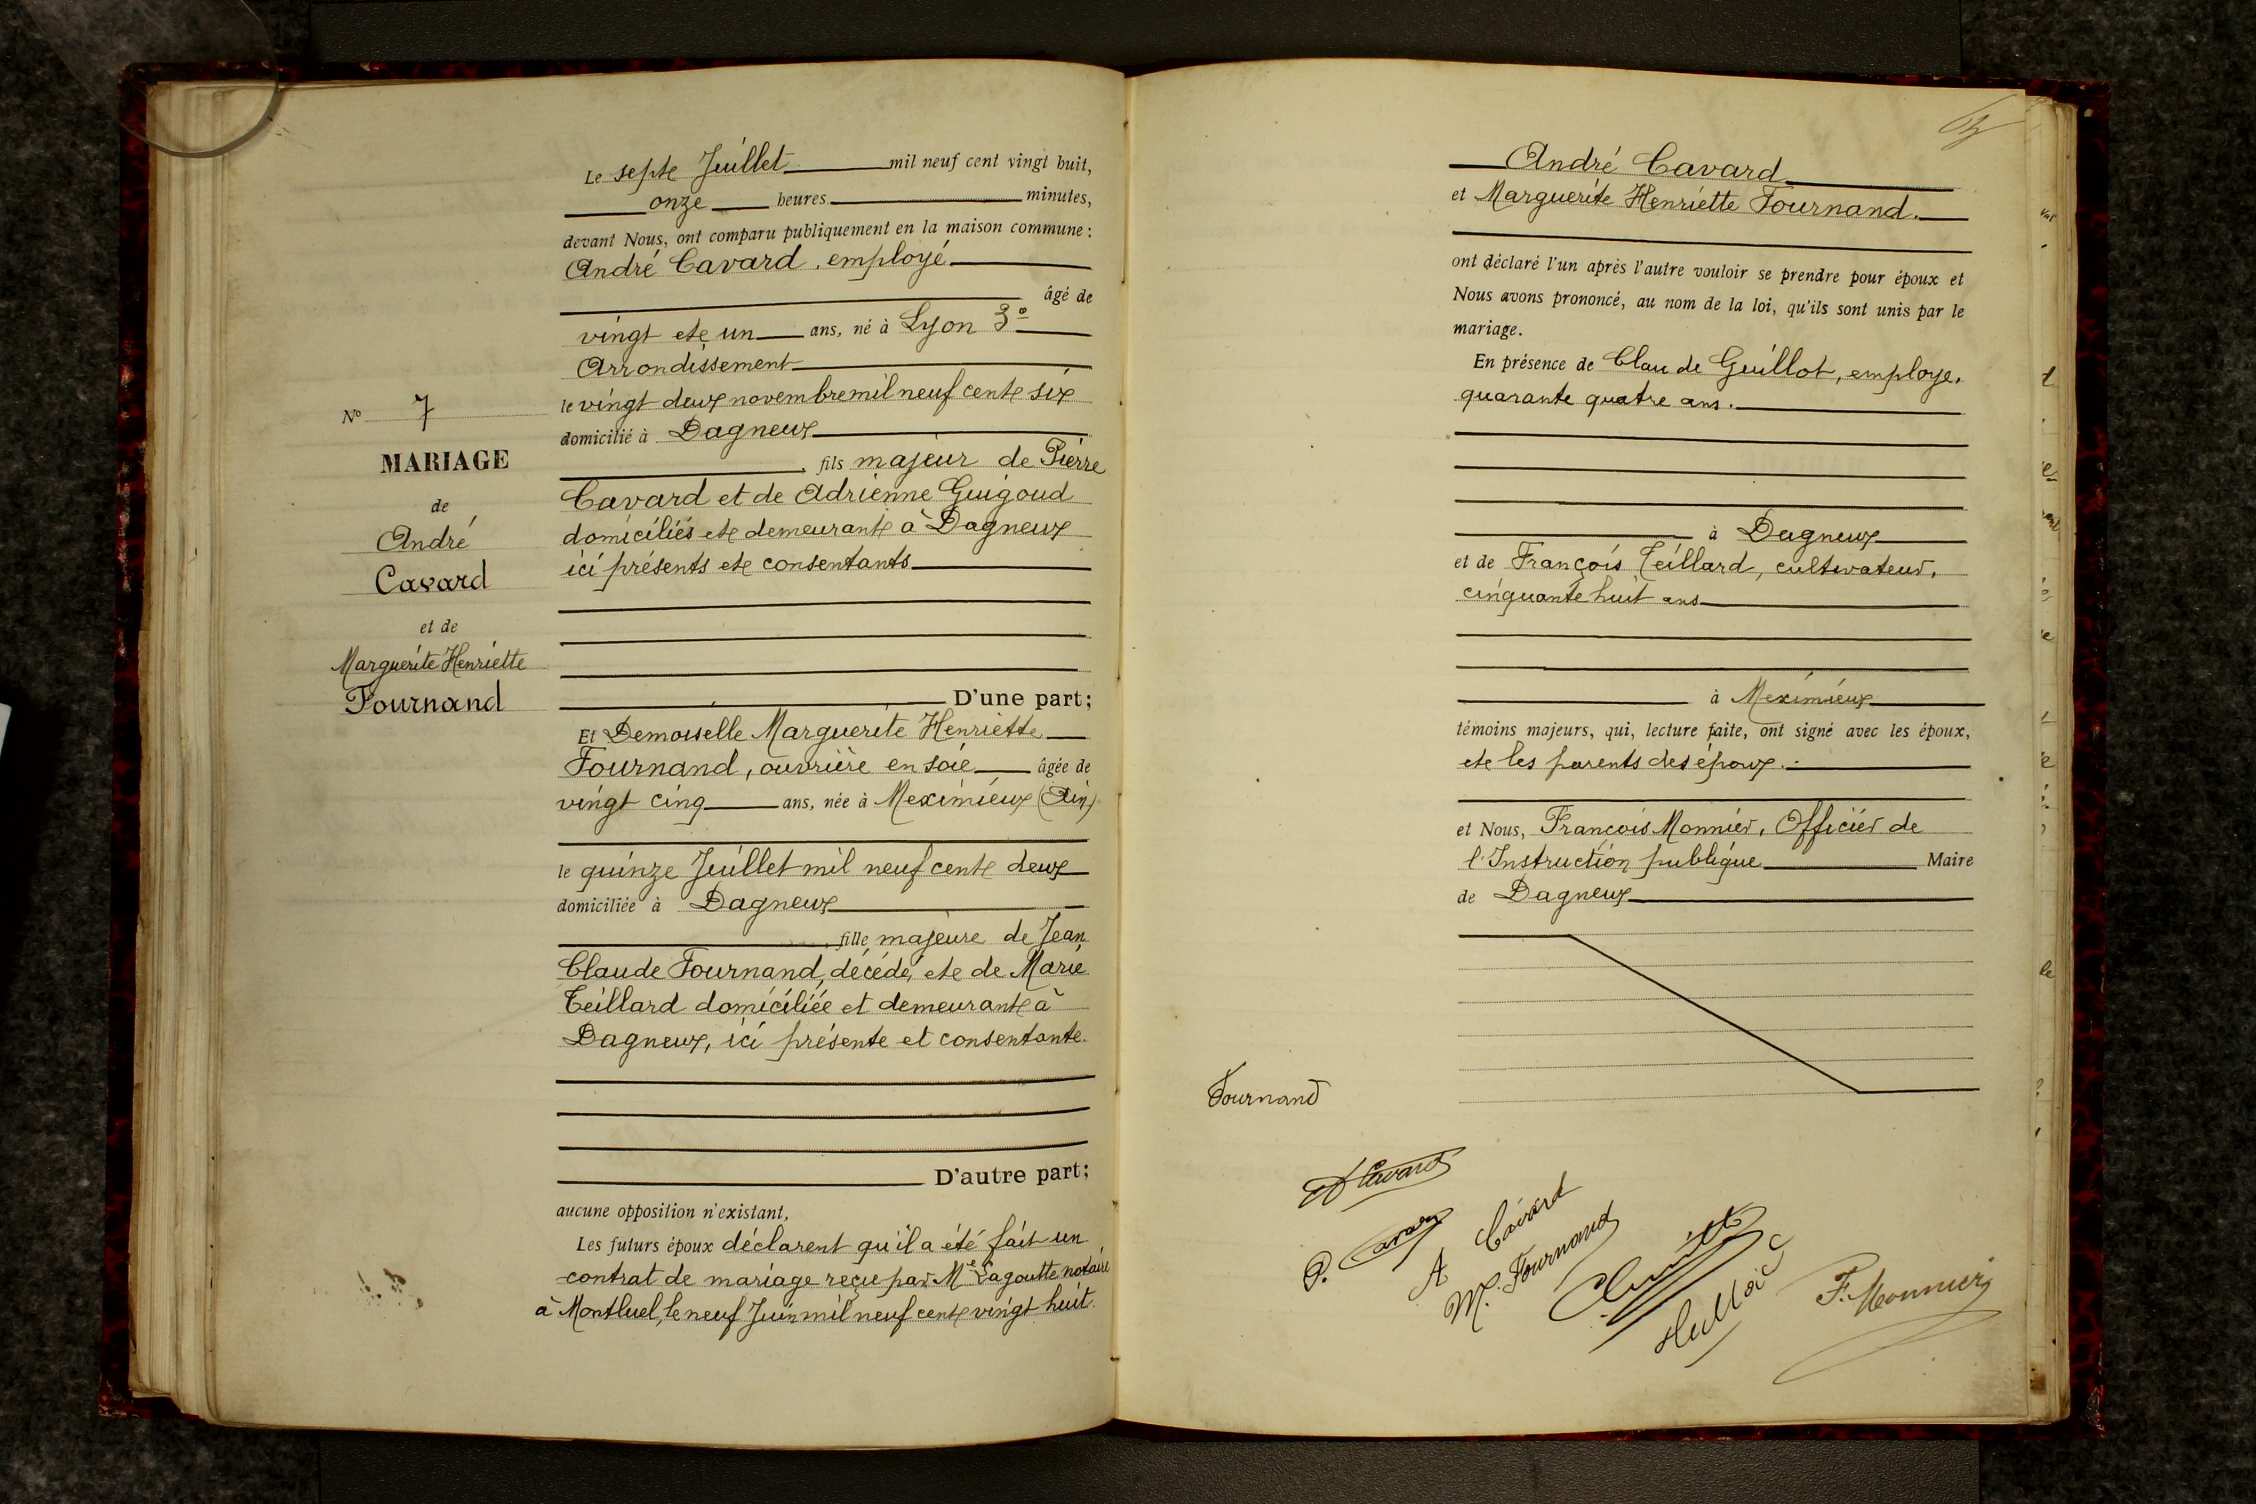 Le septe Juillet mil neuf cent vingt huit,
onze heures minutes,
devant Nous, ont comparu publiquement en la maison commune :
André Cavard, employé
âgé de
vingt ete un ans, né à Lyon 3º
Arrondissement
le vingt deux novembre mil neuf cente six
domicilié à Dagneux
, fils majeur de Pierre
Cavard et de Adrienne Guigoud
domiciliés ete demeurante à Dagneux
ici présents ete consentants
D'une part;
Nº 7
MARIAGE
de
André
Cavard
et de
Marguerite Henriette
Fournand
Et Demoiselle Marguerite Henriette
Fournand, ouvrière en soie âgée de
vingt cinq ans, née à Meximieux (Ain)
le quinze Juillet mil neuf cente deux
domiciliée à Dagneux
, fille majeure de Jean
Claude Fournand, décédé, ete de Marie
Teillard domiciliée et demeurante à
Dagneux, ici présente et consentante.
D'autre part;
aucune opposition n'existant,
Les futurs époux déclarent qu'il a été fait un
contrat de mariage reçu par Me Lagoutte notaire
à Montluel, le neuf Juin mil neuf cente vingt huit.
André Cavard
et Marguerite Henriette Fournand.
ont déclaré l'un après l'autre vouloir se prendre pour époux et
Nous avons prononcé, au nom de la loi, qu'ils sont unis par le
mariage.
En présence de Claude Guillot, employe,
quarante quatre ans.
à Dagneux
et de François Teillard, cultivateur,
cinquante huit ans
à Meximieux
témoins majeurs, qui, lecture faite, ont signé avec les époux,
ete les parents des époux.
et Nous, François Monnier, Officier de
l'Instruction publique Maire
de Dagneux
Fournand
A Cavard
P. Cavard
A Cavard
M. Fournand
F. Monnier